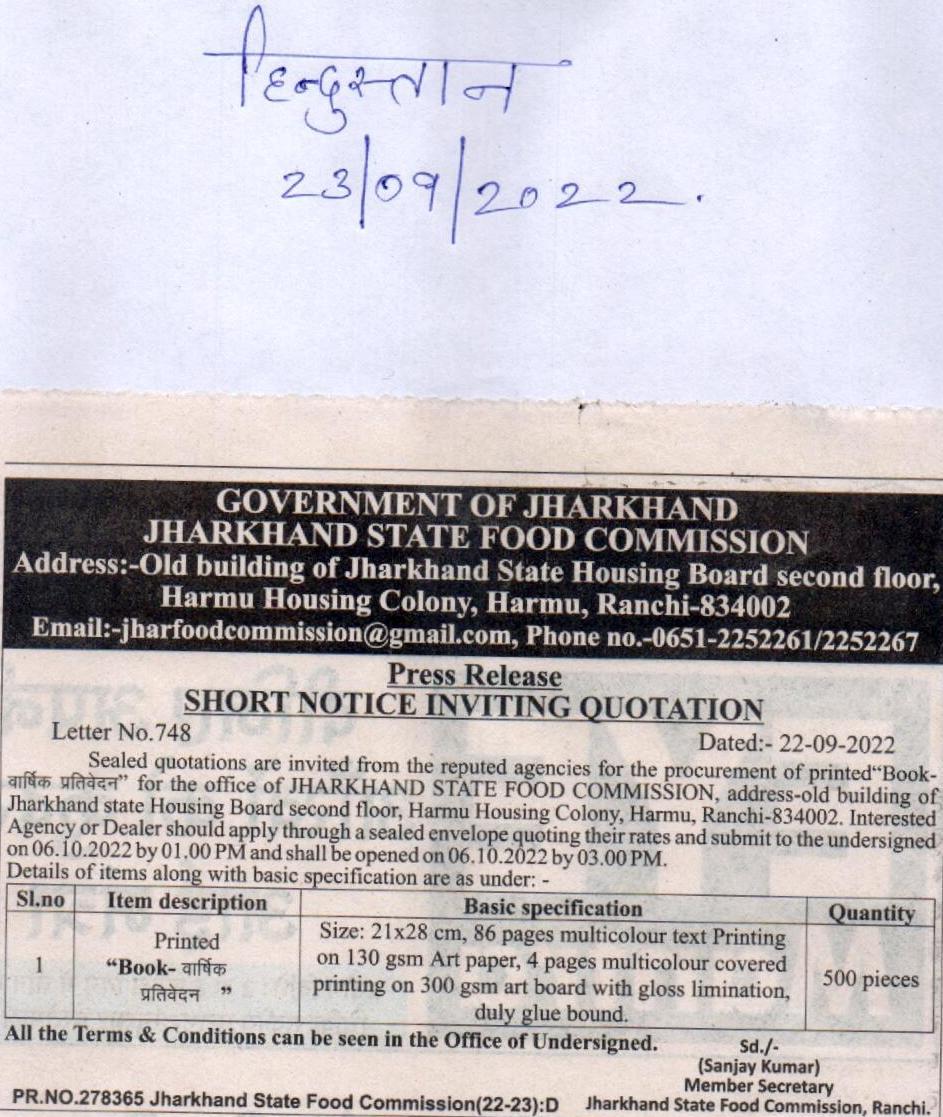 हिन्दुस्तान
23/09/2022.
GOVERNMENT OF JHARKHAND
JHARKHAND STATE FOOD COMMISSION
Address:-Old building of Jharkhand State Housing Board second floor,
Harmu Housing Colony, Harmu, Ranchi-834002
Email:-jharfoodcommission@gmail.com, Phone no.-0651-2252261/2252267
Press Release
SHORT NOTICE INVITING QUOTATION
Letter No.748 Dated:- 22-09-2022
Sealed quotations are invited from the reputed agencies for the procurement of printed“Book-
वार्षिक प्रतिवेदन” for the office of JHARKHAND STATE FOOD COMMISSION, address-old building of
Jharkhand state Housing Board second floor, Harmu Housing Colony, Harmu, Ranchi-834002. Interested
Agency or Dealer should apply through a sealed envelope quoting their rates and submit to the undersigned
on 06.10.2022 by 01.00 PM and shall be opened on 06.10.2022 by 03.00 PM.
Details of items along with basic specification are as under: -
Sl.no Item description Basic specification Quantity
1 Printed “Book- वार्षिक प्रतिवेदन ” Size: 21x28 cm, 86 pages multicolour text Printing
on 130 gsm Art paper, 4 pages multicolour covered
printing on 300 gsm art board with gloss limination,
duly glue bound. 500 pieces
All the Terms & Conditions can be seen in the Office of Undersigned.
Sd./-
(Sanjay Kumar)
Member Secretary
PR.NO.278365 Jharkhand State Food Commission(22-23):D Jharkhand State Food Commission, Ranchi.